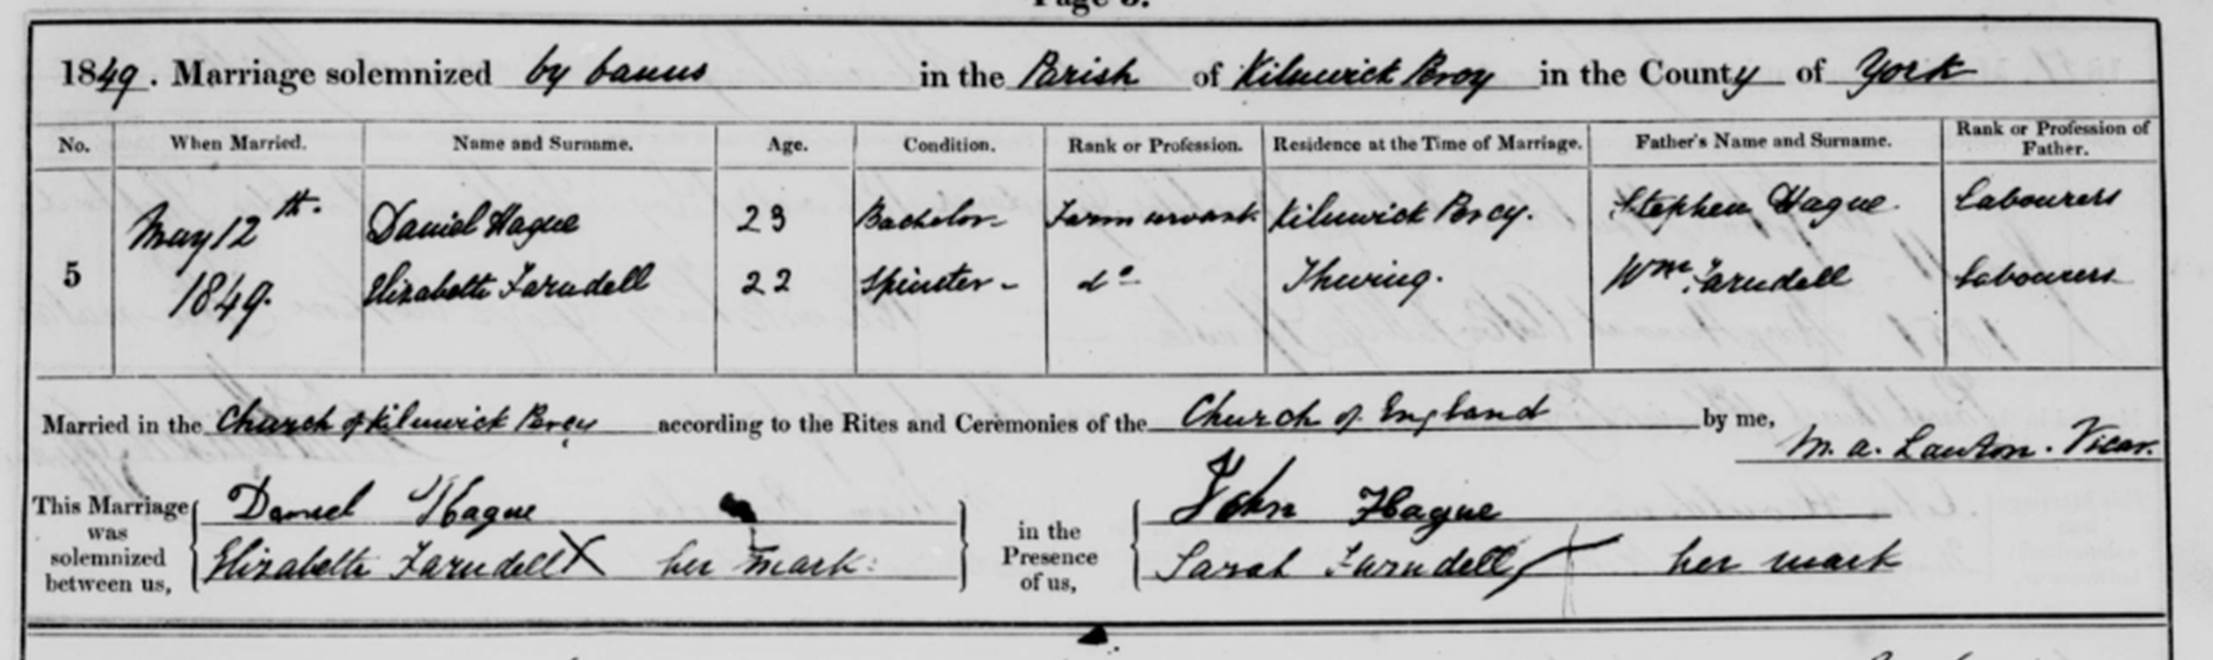 Page 3.
1849. Marriage solemnized by banns in the Parish of Kilnwick Percy in the County of York
No. When Married. Name and Surname. Age. Condition. Rank or Profession. Residence at the Time of Marriage. Father's Name and Surname. Rank or Profession of Father.
May 12th. Daniel Hague 23 Bachelor Farm servant Kilnwick Percy. Stephen Hague. Labourers
5 1849. Elizabeth Farndell 22 Spinster - do Thwing. Wm. Farndell Labourers
Married in the Church of Kilnwick Percy according to the Rites and Ceremonies of the Church of England by me,
M. A. Lawton. Vicar.
This Marriage was solemnized between us, Daniel Hague in the Presence of us, John Hague
Elizabeth Farndell X her mark. Sarah Farndell X her mark